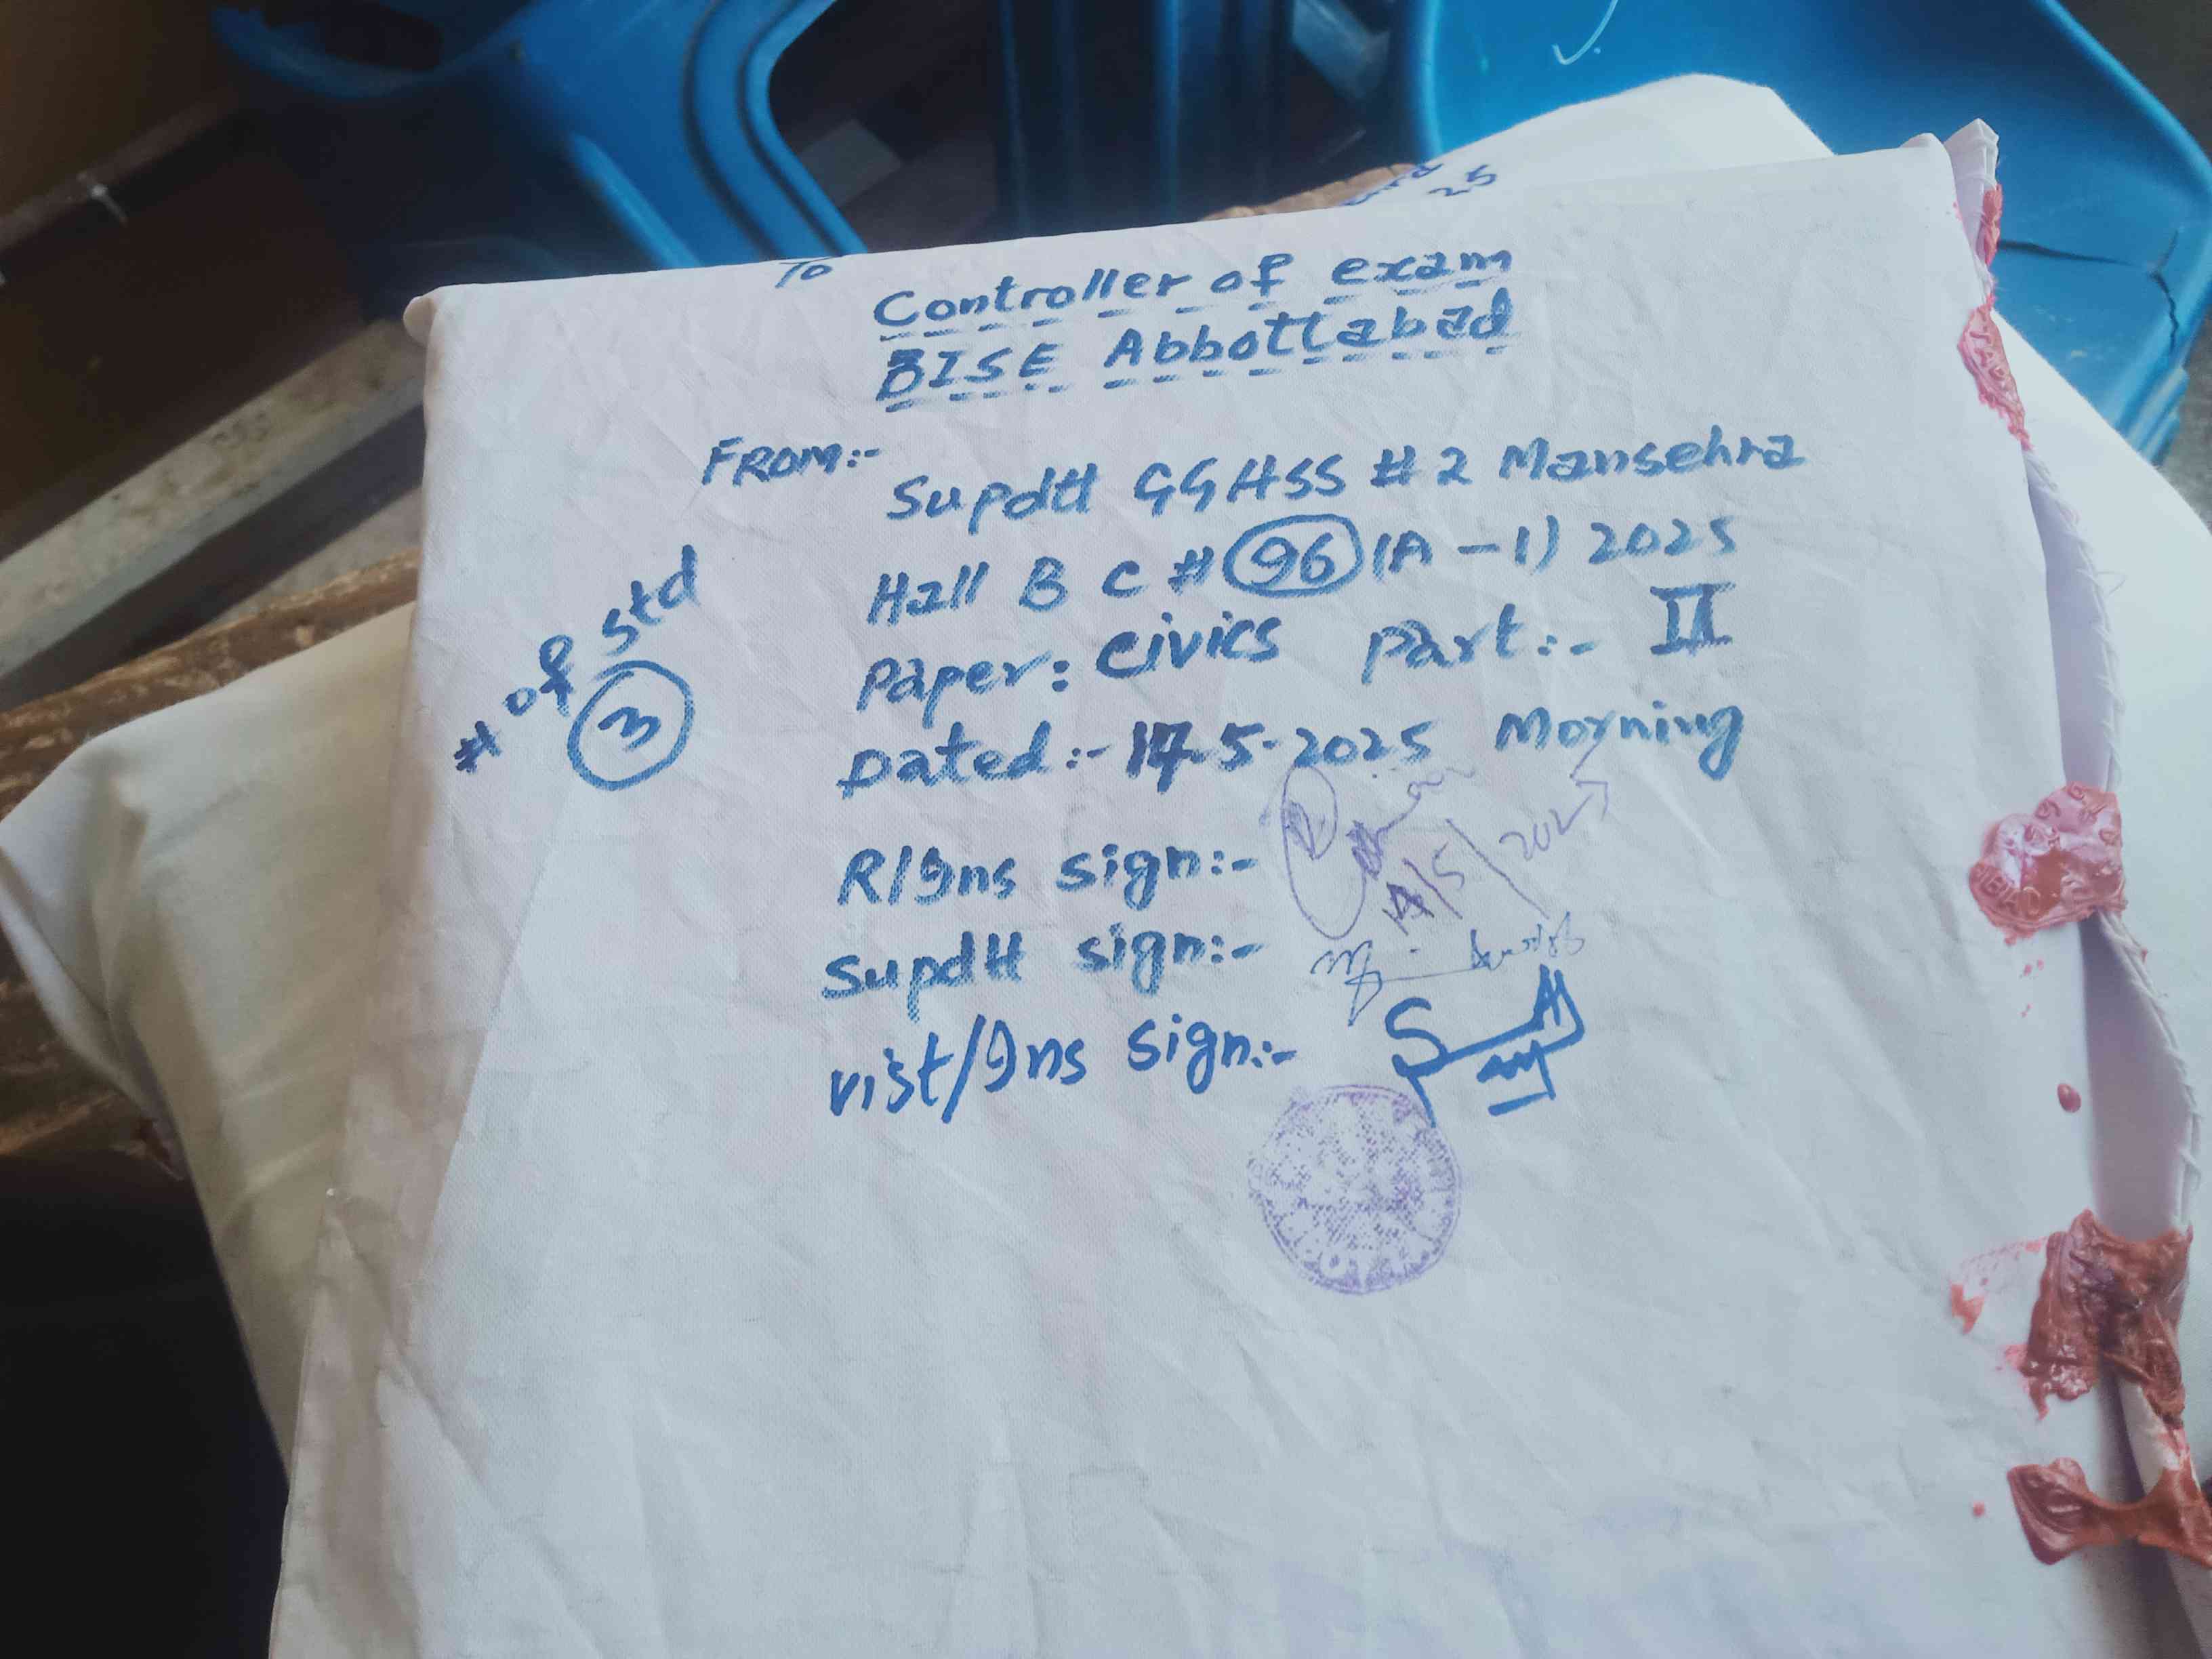 To
Controller of exam
BISE Abbottabad
FROM:-
Supdtt GGHSS #2 Mansehra
Hall B C # 96 (A-1) 2025
# of std
3
Paper: Civics Part:- II
Dated:- 17-5-2025 Morning
R/Ins sign:-
Supdtt sign:-
vist/Ins sign:-